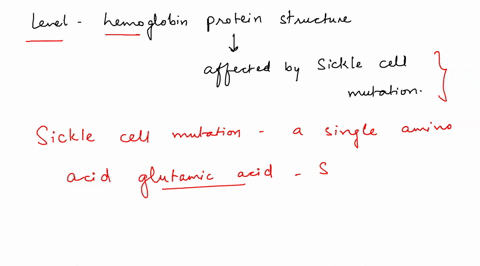 Level - hemoglobin protein structure
↓
affected by Sickle cell
mutation.
Sickle cell mutation - a single amino
acid glutamic acid - S